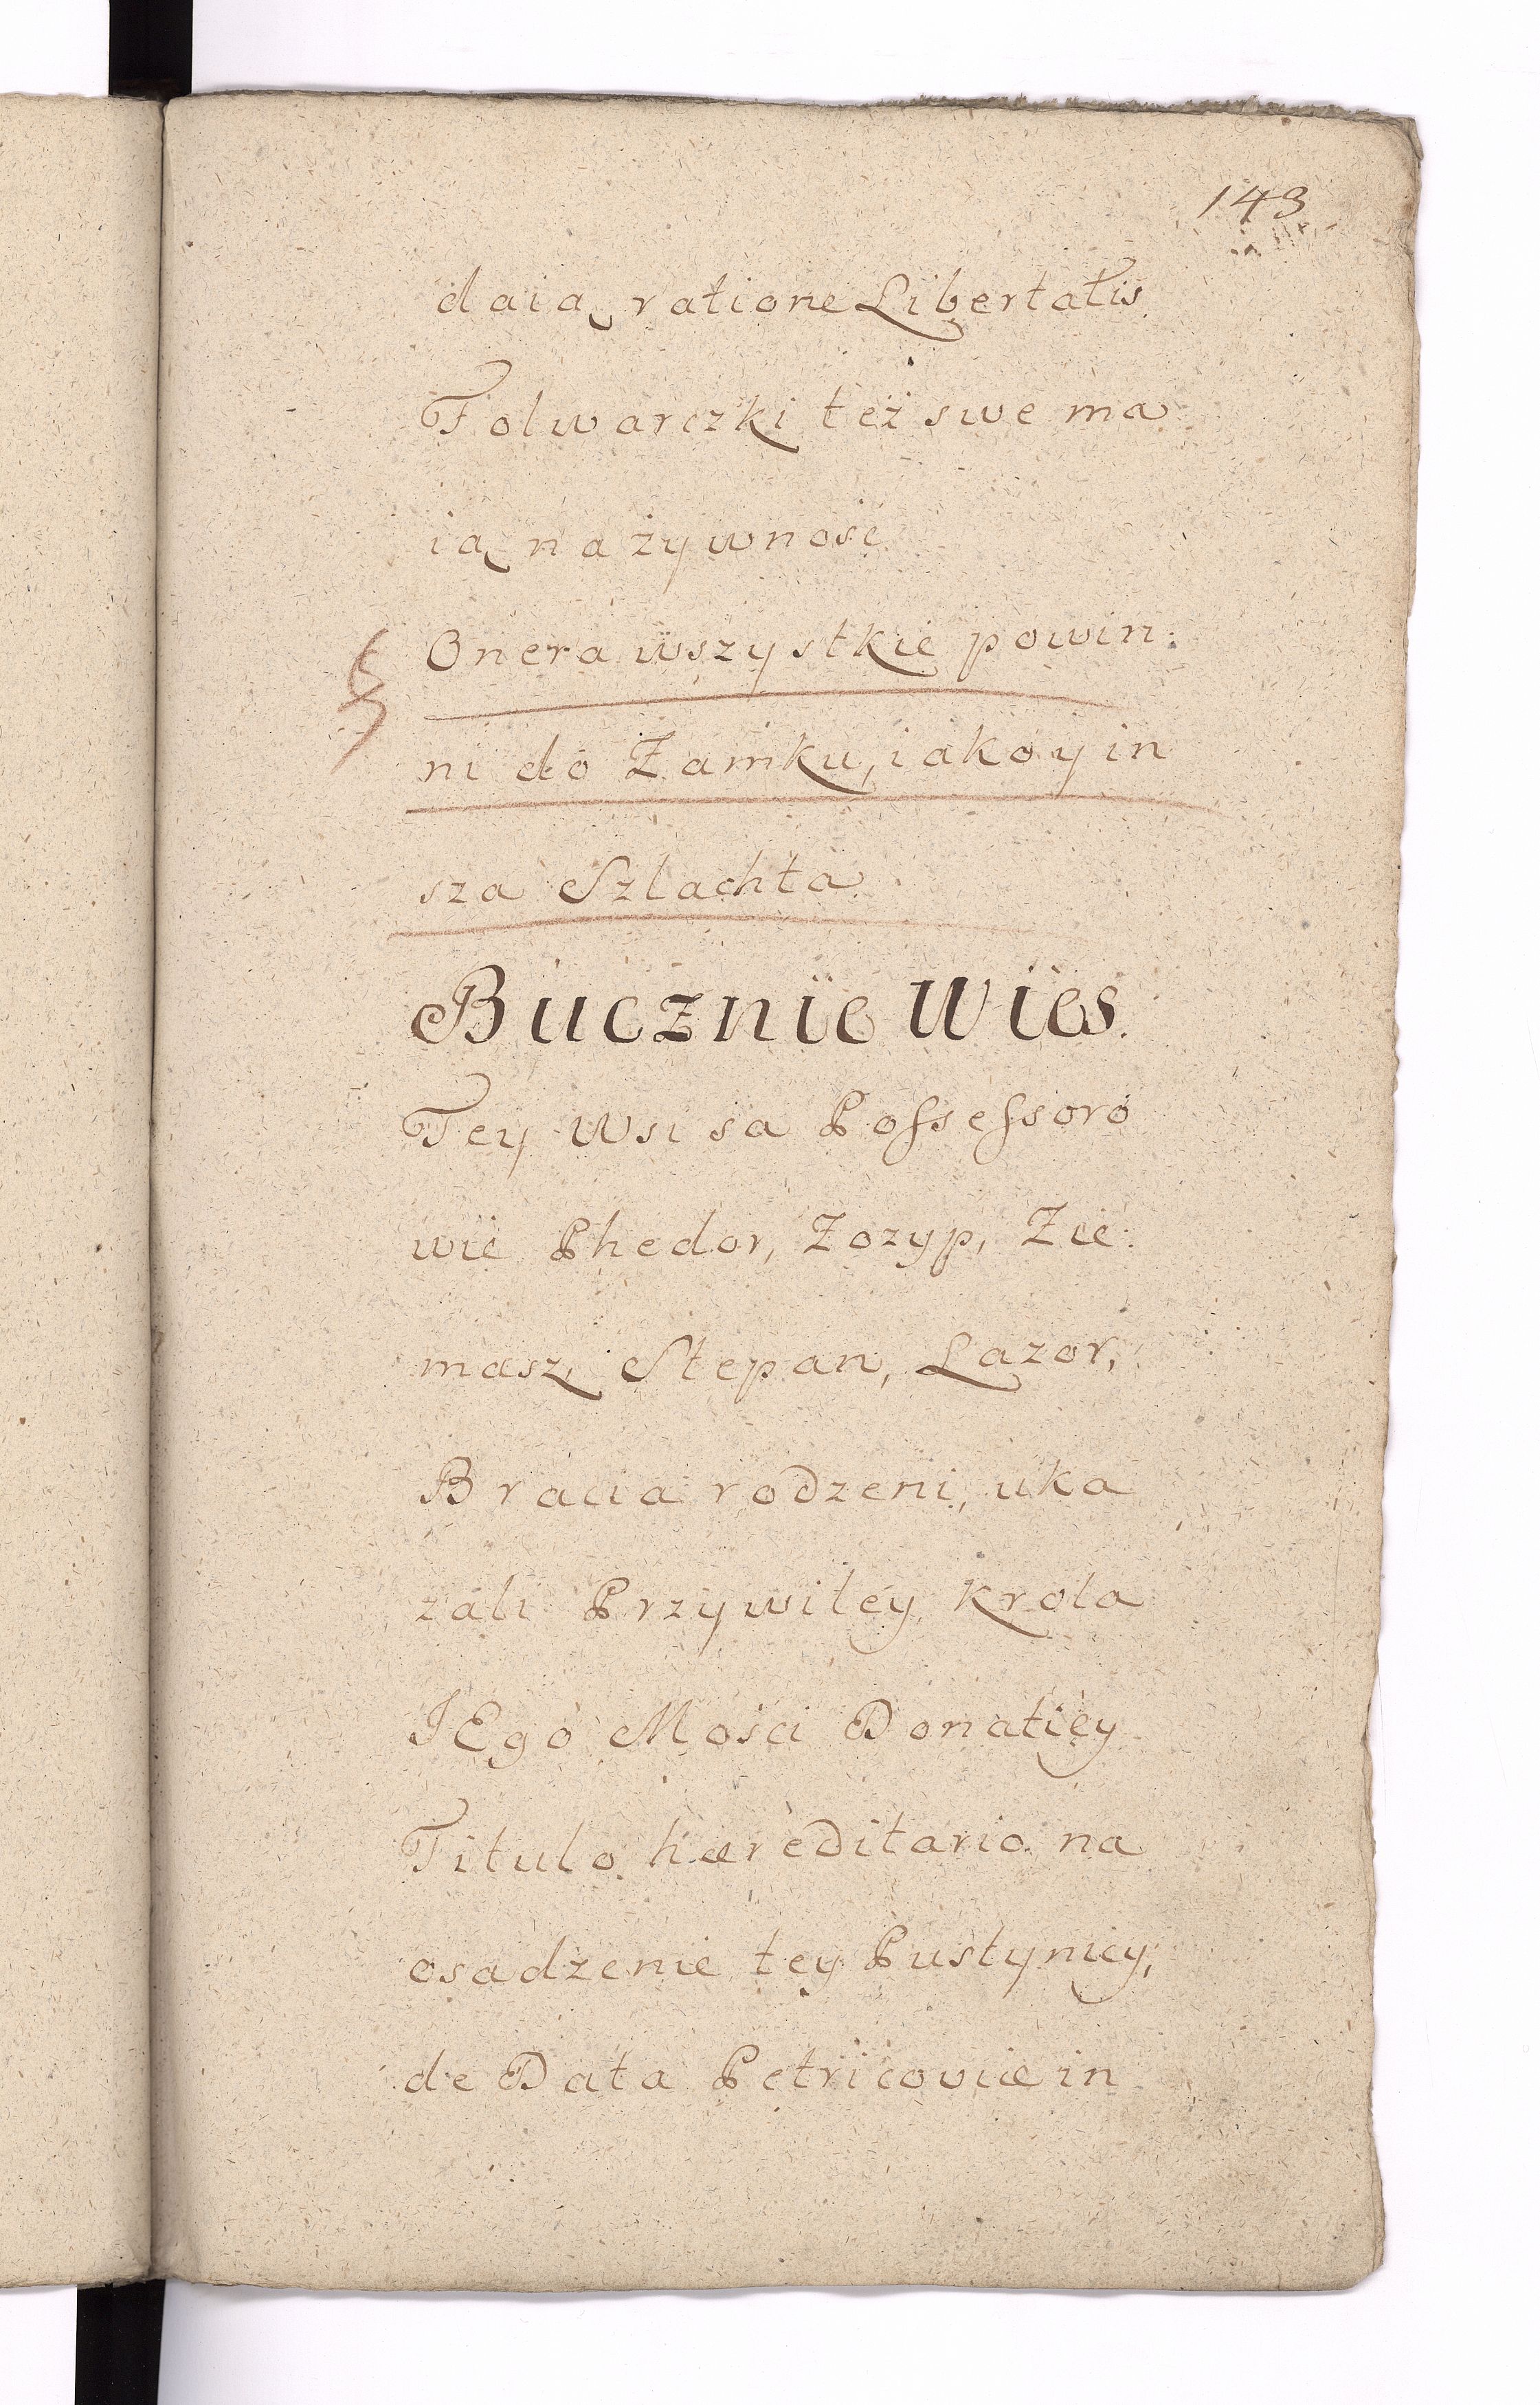 143
daią ratione Libertatis
Folwarczki też swe ma
ią na żywność
Onera wszystkie powin:
ni do Zamku, iako y in
sza Szlachta
Bucznie Wies.
Tey Wsi sa Possessoro
wie Phedor, Zozyp, Zie:
masz, Stepan, Lazor,
Bracia rodzeni, uka
zali Przywiley Krola
JEgo Mości Donatiey
Titulo hæreditario na
osadzenie tey Pustynicy,
de Data Petricoviæ in